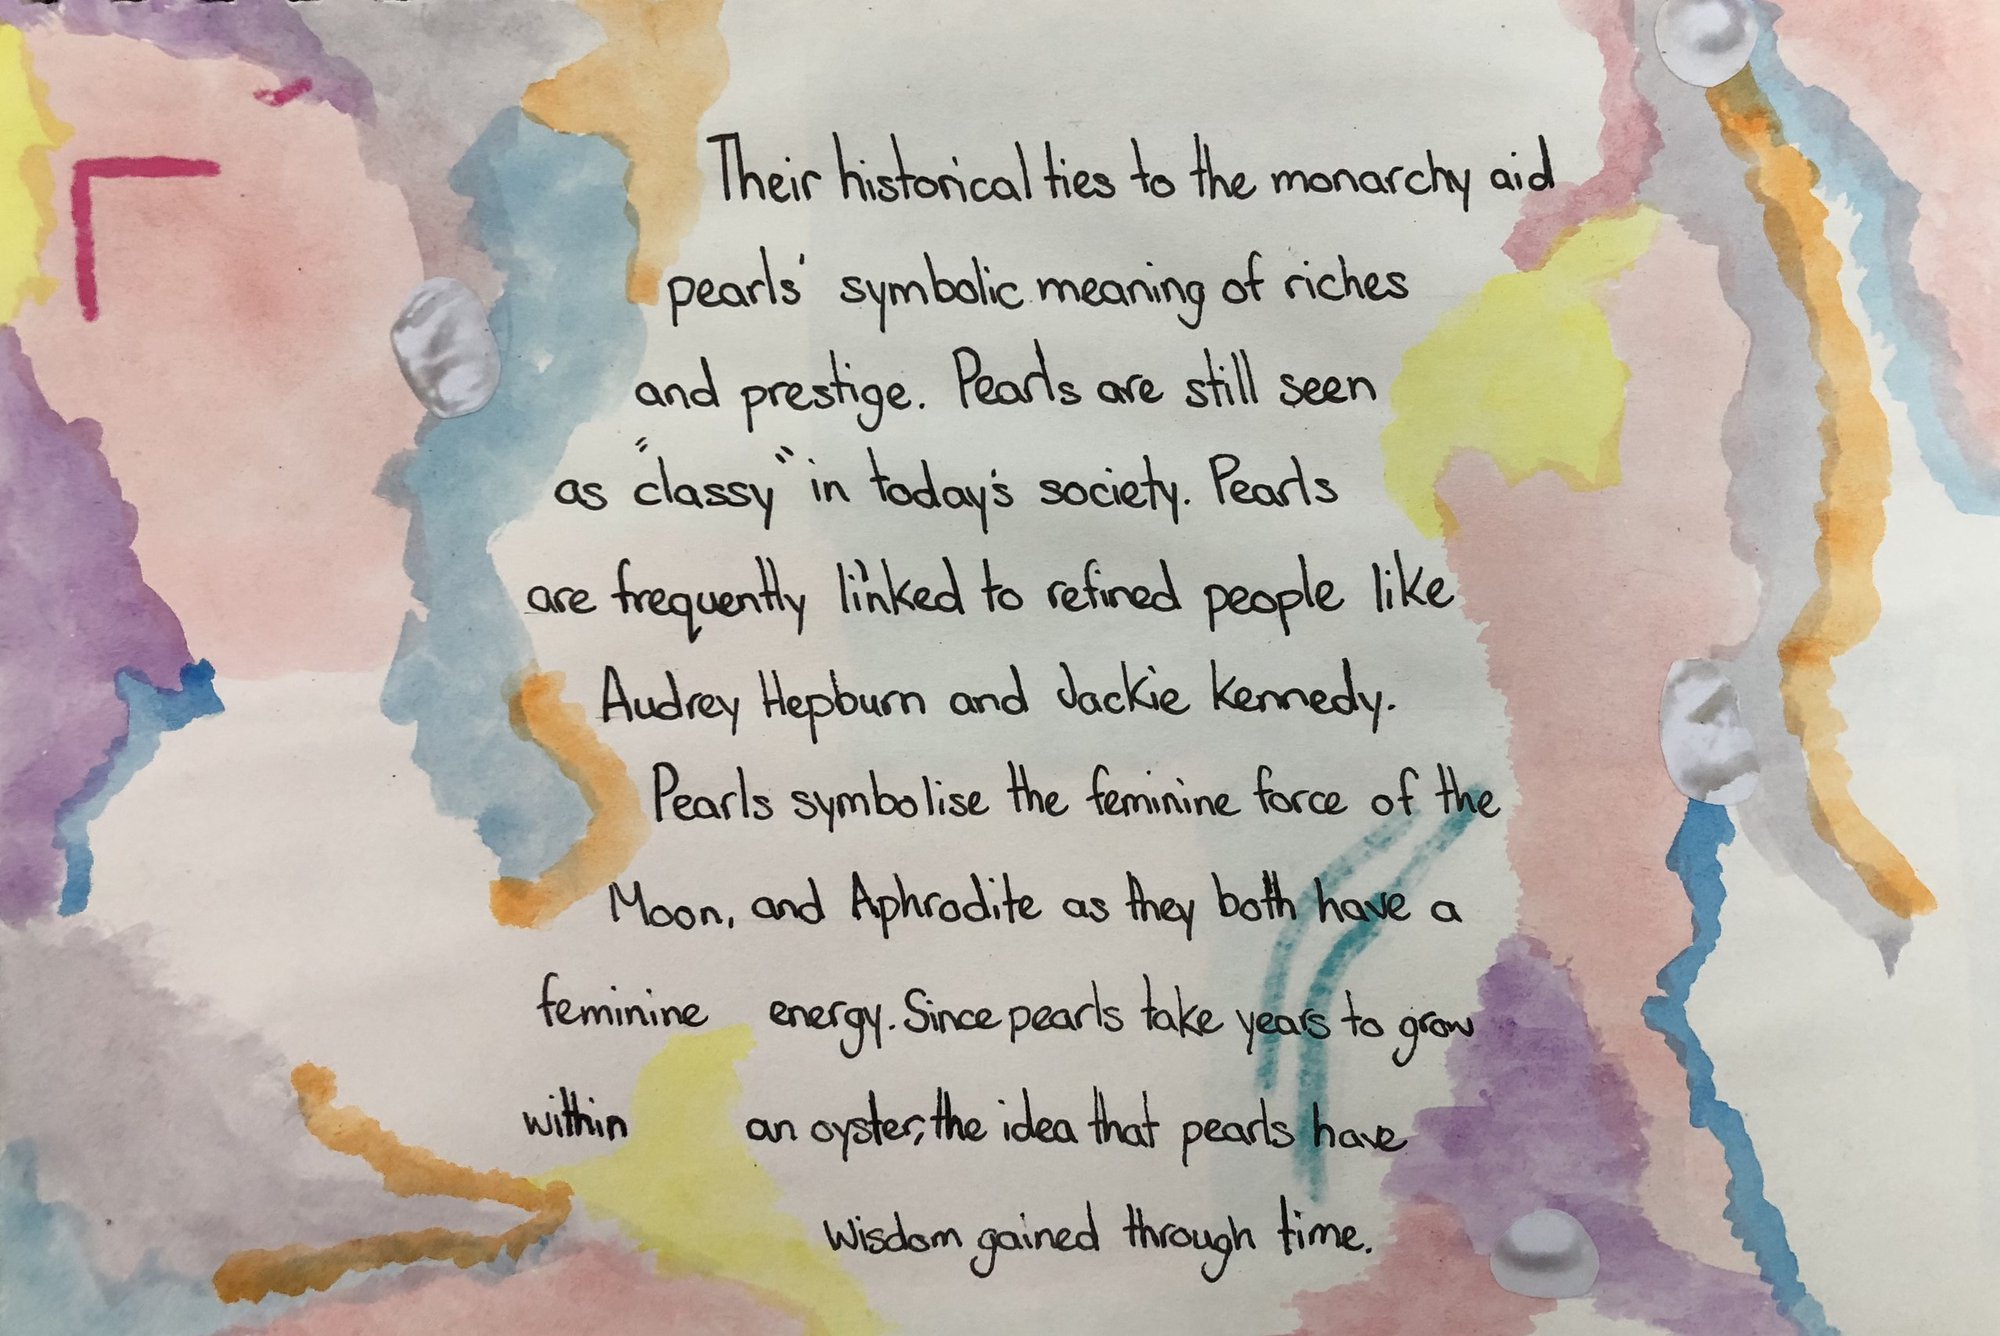 Their historical ties to the monarchy aid
pearls' symbolic meaning of riches
and prestige. Pearls are still seen
as "classy" in today's society. Pearls
are frequently linked to refined people like
Audrey Hepburn and Jackie Kennedy.
Pearls symbolise the feminine force of the
Moon, and Aphrodite as they both have a
feminine energy. Since pearls take years to grow
within an oyster, the idea that pearls have
wisdom gained through time.